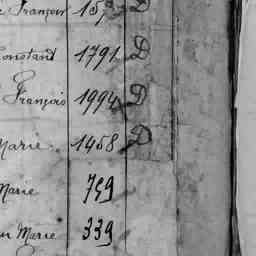 François 15 D
Constant 1791 D
François 1994 D
Marie 1458 D
Marie 759
Marie 339